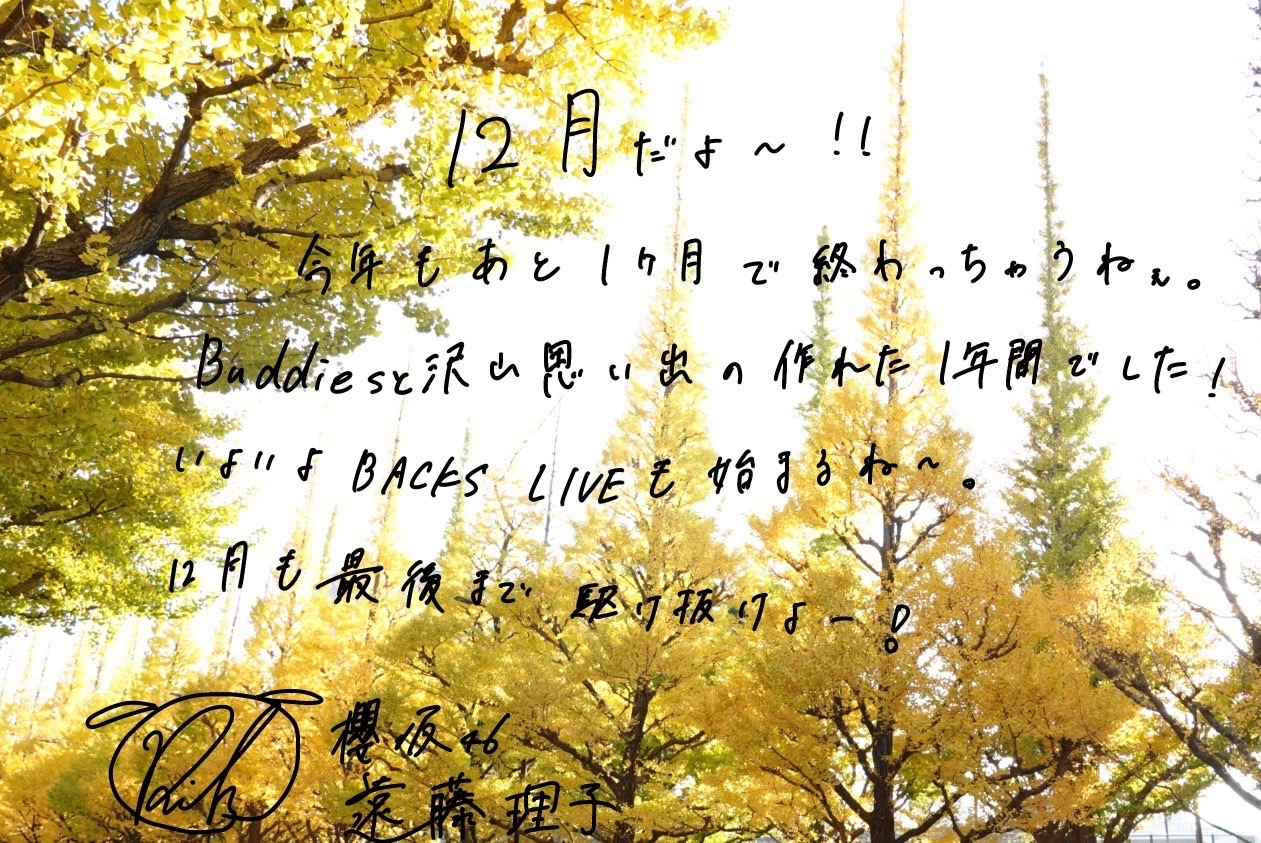 12月だよ〜!!
今年もあと1ヶ月で終わっちゃうねぇ。
Buddiesと沢山思い出の作れた1年間でした!
いよいよBACKS LIVEも始まるね〜。
12月も最後まで駆け抜けよー!
櫻坂46
遠藤理子